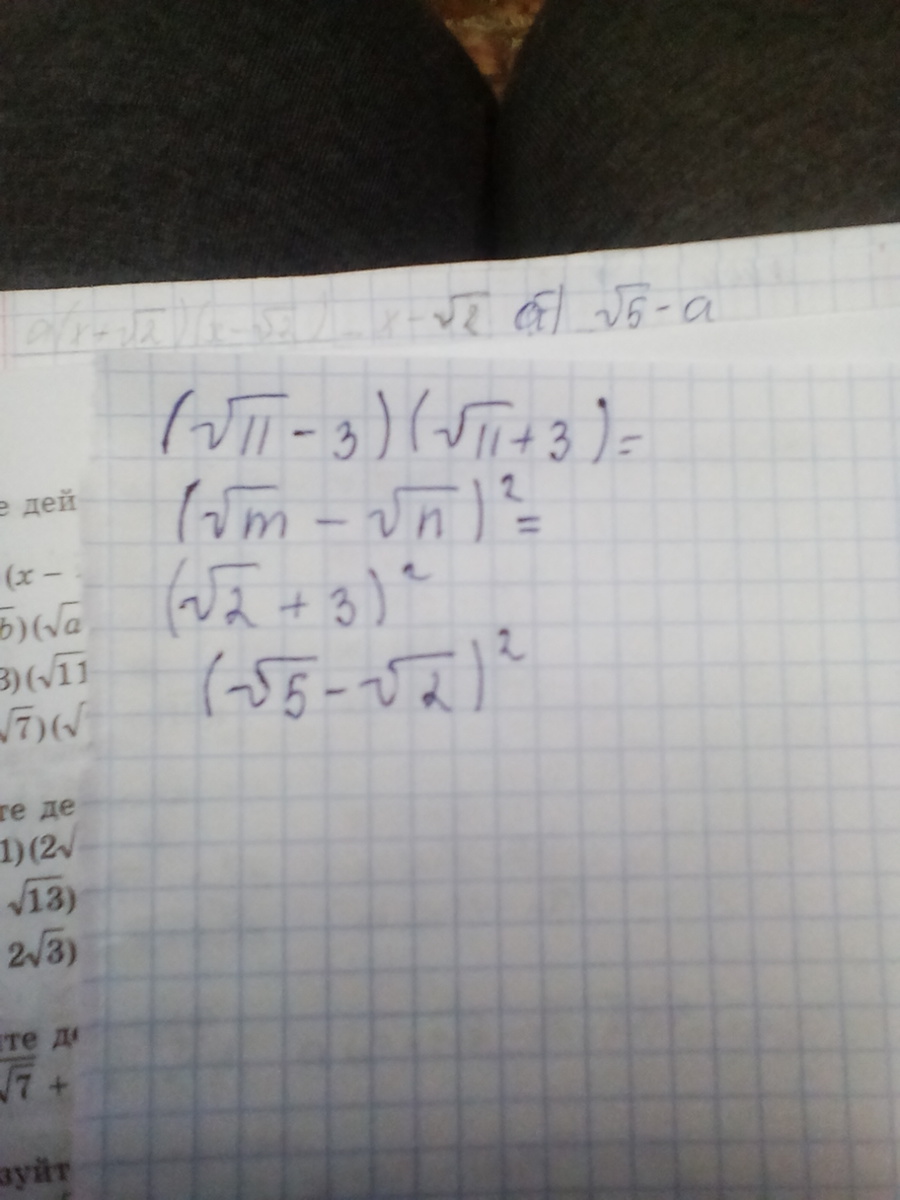 а) (x+√2)(x-√2) = x - √2 б) √5 - a
(√11 - 3)(√11 + 3) =
(√m - √n)² =
(√2 + 3)²
(√5 - √2)²
е дей
(x −
b)(√a
3)(√11
√7)(√
те де
1)(2√
√13)
2√3)
те д
√7 +
зуйт